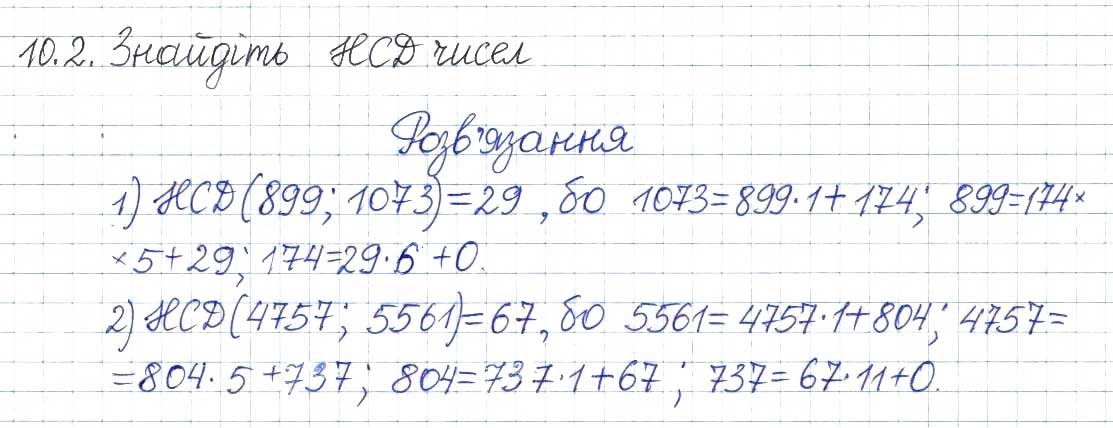 10.2. Знайдіть НСД чисел
Розв'язання
1) НСД(899; 1073)=29, бо 1073=899·1+174; 899=174×
×5+29; 174=29·6+0.
2) НСД(4757; 5561)=67, бо 5561=4757·1+804; 4757=
=804·5+737; 804=737·1+67; 737=67·11+0.